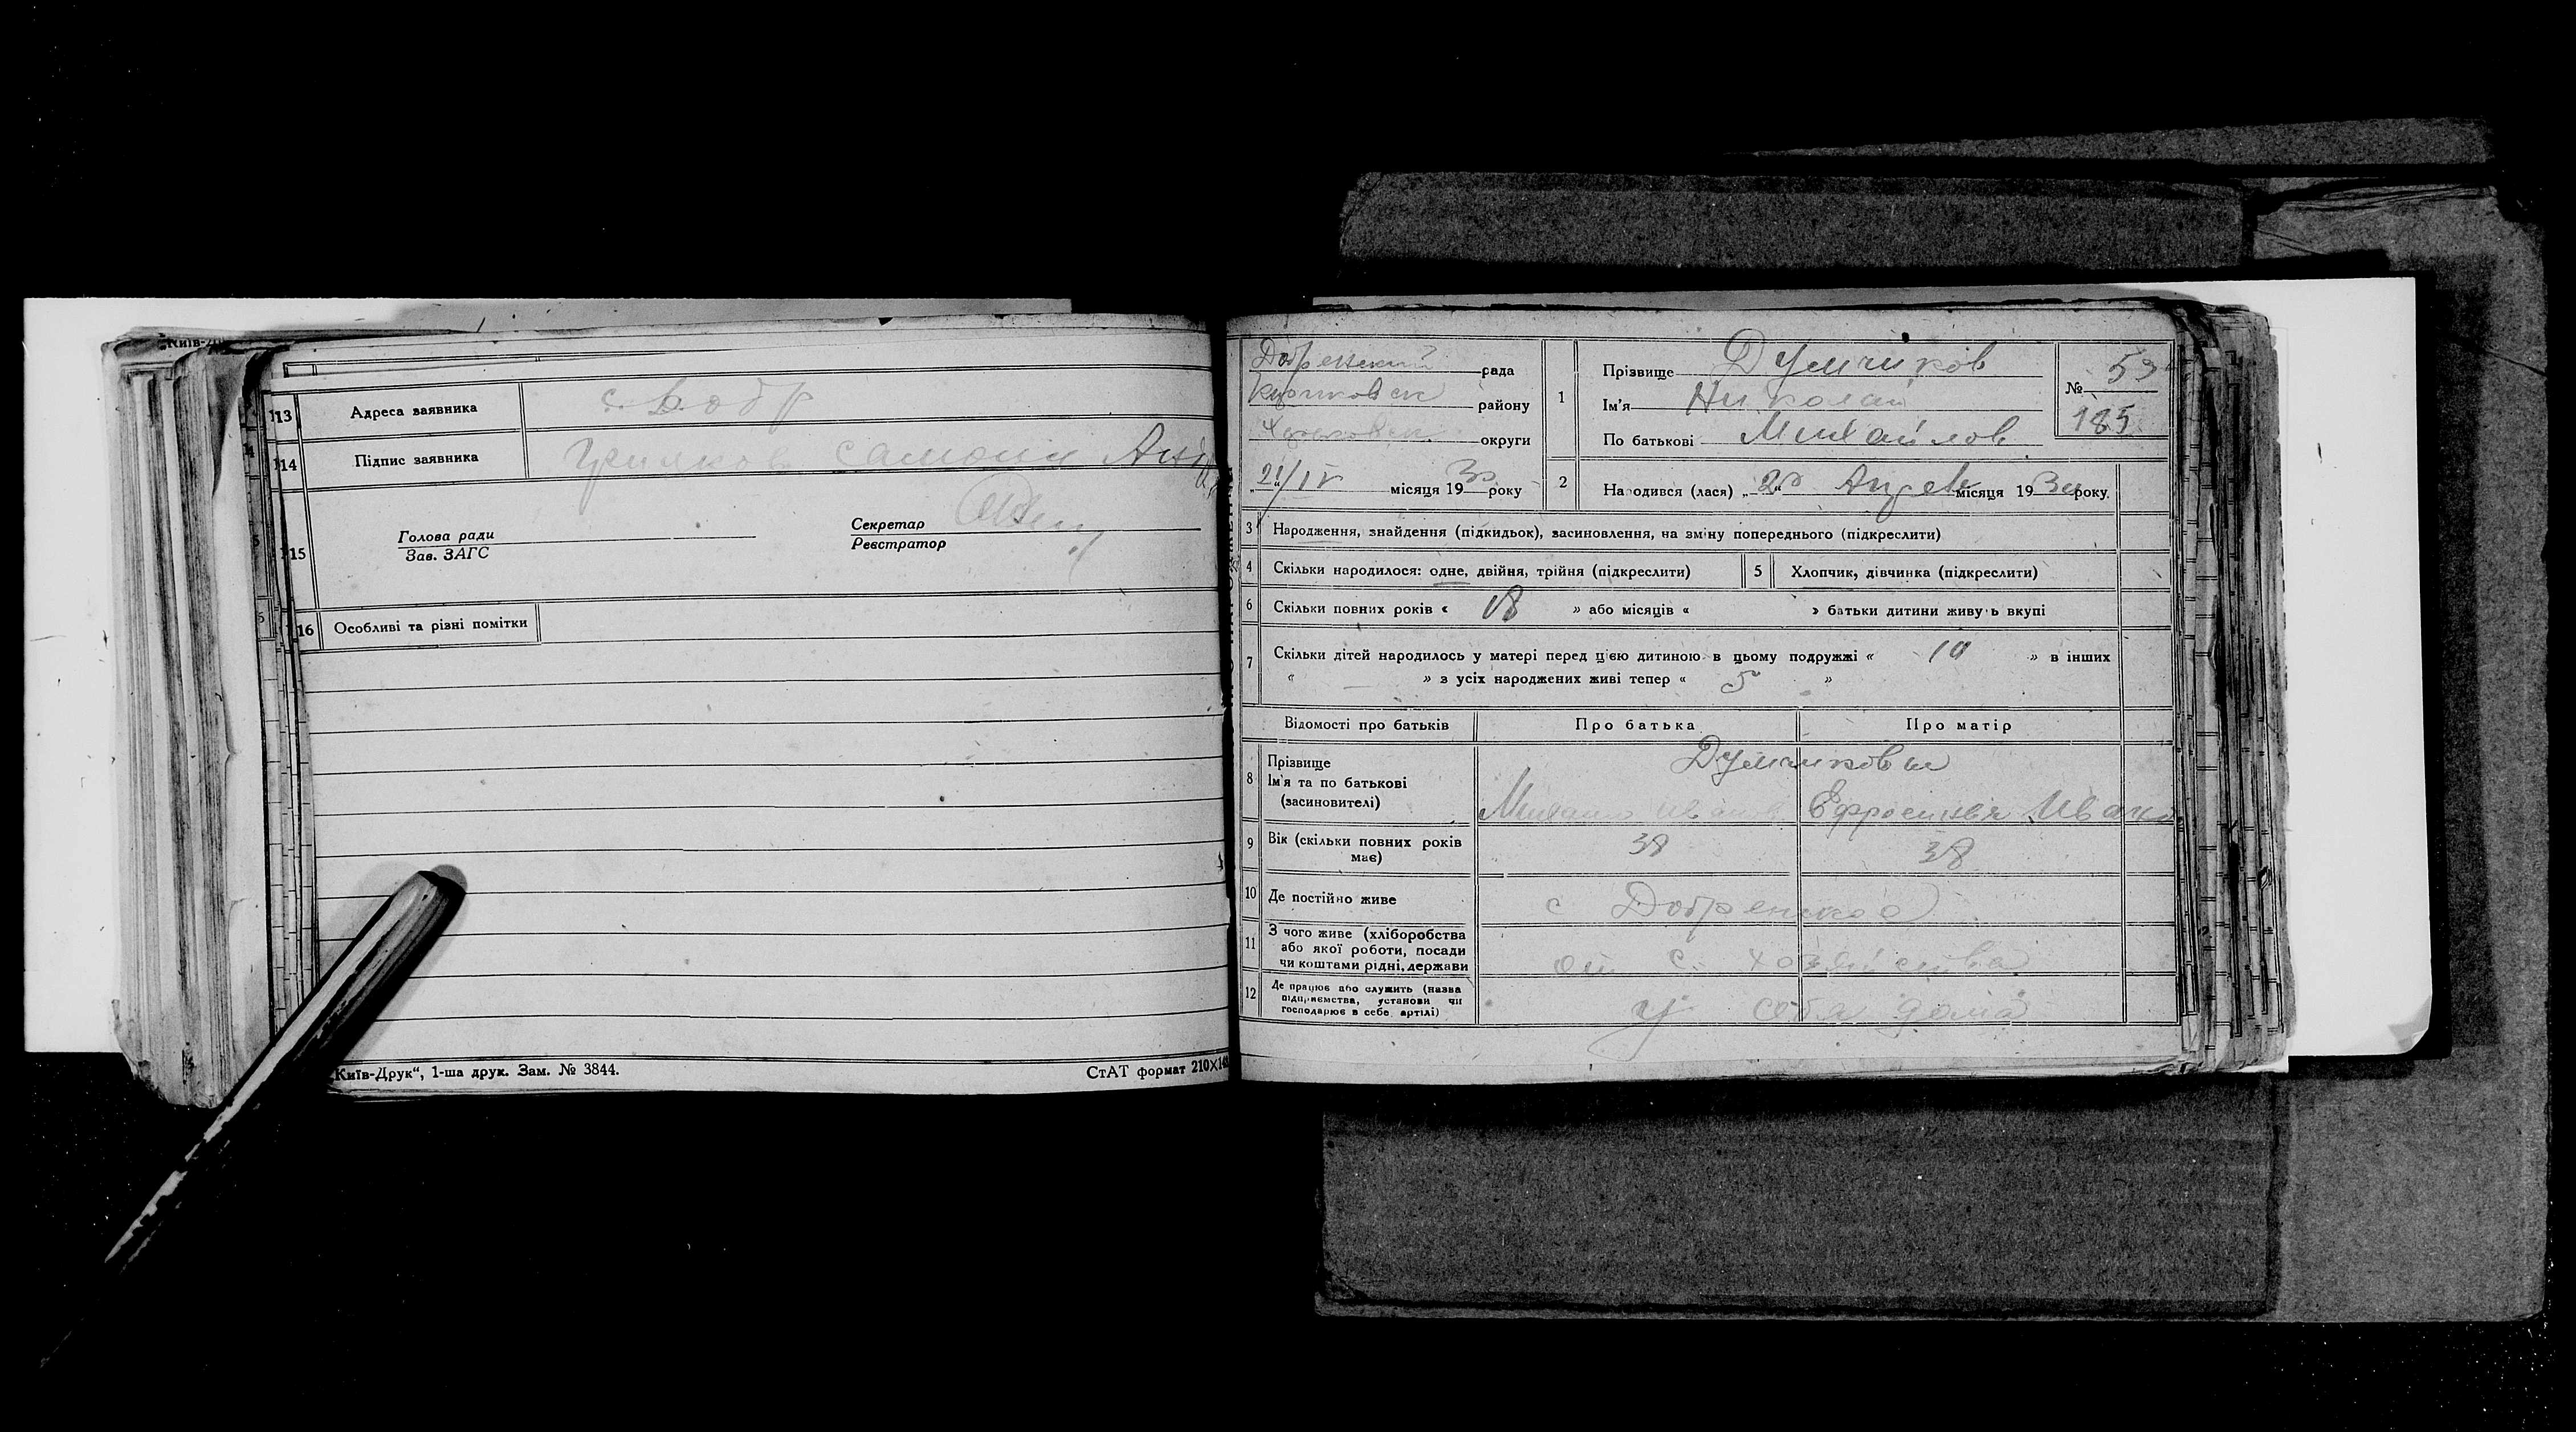 Київ-Д
13 Адреса заявника с.
14 Підпис заявника
15 Голова ради
Зав. ЗАГС
Секретар
Реєстратор
16 Особливі та різні помітки
„Київ-Друк“, 1-ша друк. Зам. № 3844.
СтАТ формат 210×148
Добренский рада
району
округи
21/IV місяця 1930 року
1 Прізвище Думчиков
Ім'я Николай
По батькові Михайлов
№ 59
185
2 Народився (лася) „20“ Апреля місяця 1930 року.
3 Народження, знайдення (підкидьок), засиновлення, на зміну попереднього (підкреслити)
4 Скільки народилося: одне, двійня, трійня (підкреслити)
5 Хлопчик, дівчинка (підкреслити)
6 Скільки повних років « 18 » або місяців « » батьки дитини живуть вкупі
7 Скільки дітей народилось у матері перед цією дитиною в цьому подружжі « 10 » в інших
« — » з усіх народжених живі тепер « 5 »
Відомості про батьків
Про батька
Про матір
8 Прізвище
Ім'я та по батькові
(засновителі)
Думчиковы
Михаил Иванов
Ефросинья Иванов
9 Вік (скільки повних років
має)
38
38
10 Де постійно живе
с Добренской
11 З чого живе (хліборобства
або якої роботи, посади
чи коштами рідні, держави
от с. хозяйства
12 Де працює або служить (назва
підприємства, установи чи
господарює в себе, артілі)
у себя дома